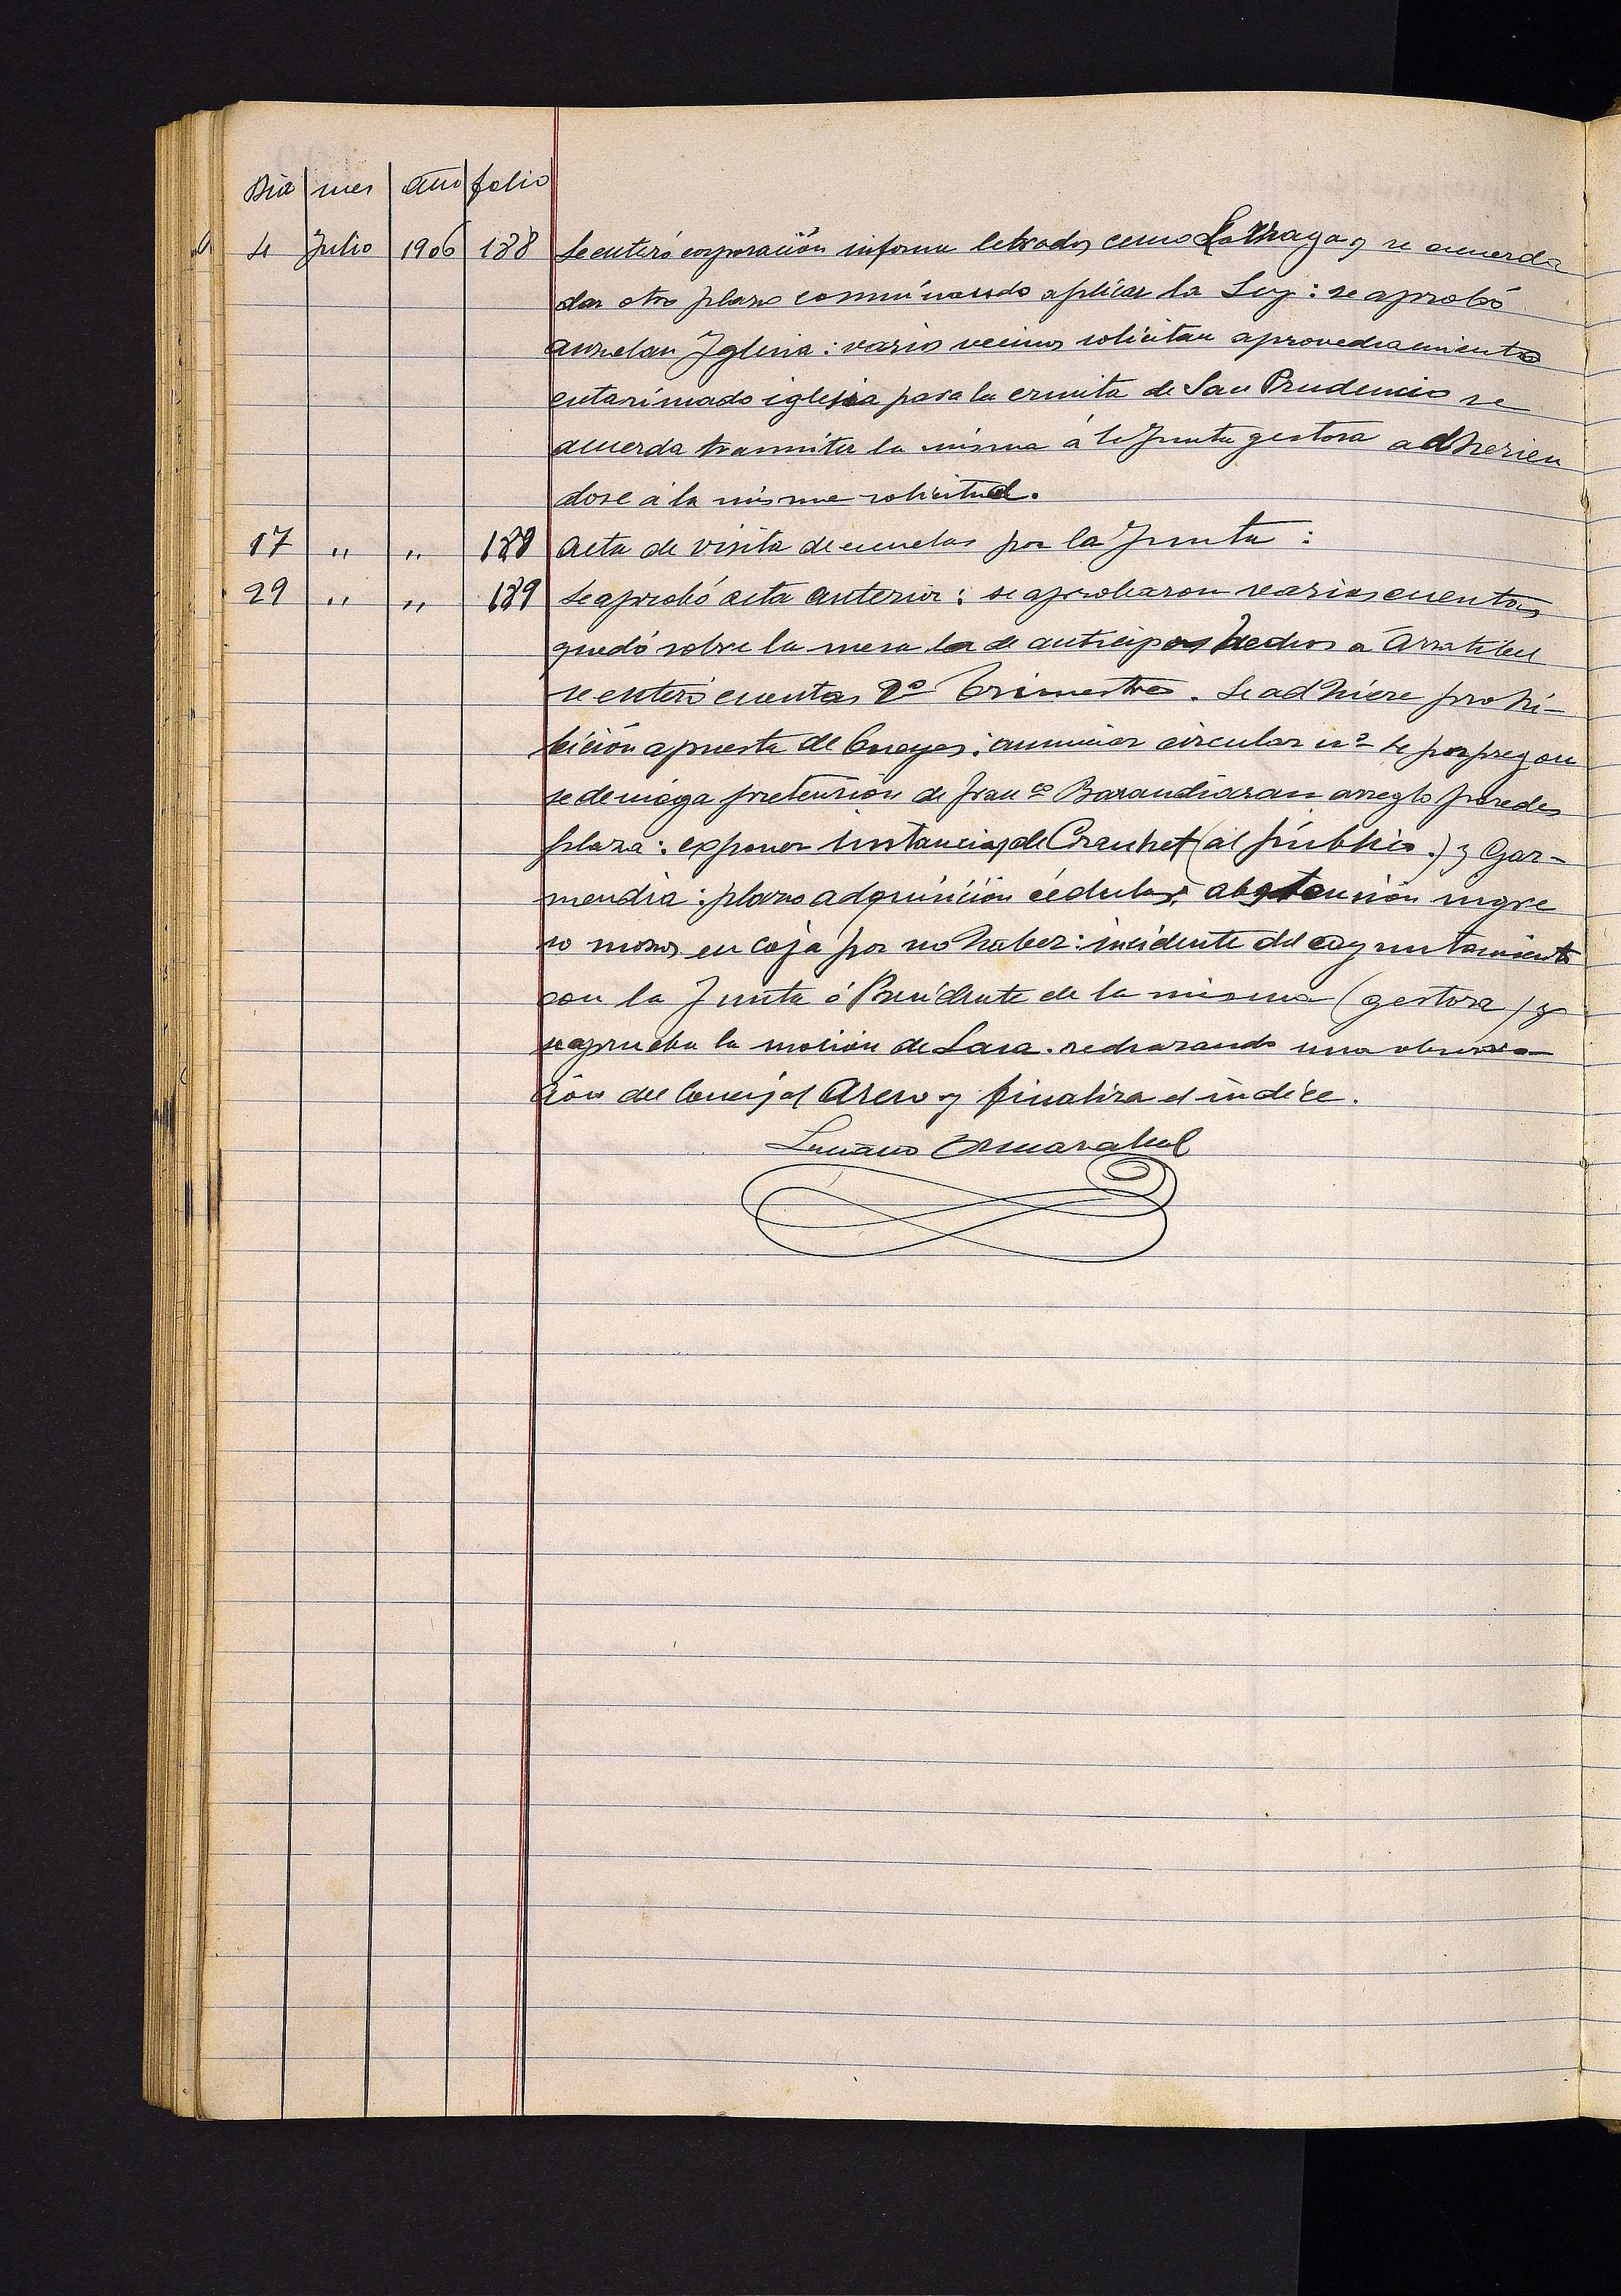 Dia mes Año folio
4 Julio 1906 188 Se enteró corporación informe letrados censo Larraga y se acuerda
dar otro plazo comminando aplicar la Ley: se aprobó
Iglesia: varios vecinos solicitan aprovechamiento
entarimado iglesia para la ermita de San Prudencio se
acuerda tramitar la misma á la Junta gestora adhirien
dose á la misma solicitud.
17 " " 188 Acta de visita de escuelas por la Junta:
29 " " 189 Se aprobó acta anterior: se aprobaron varias cuentas
quedó sobre la mesa la de anticipos hechos a Arratibel
se enteró cuentas 2º Trimestre. Se adhiere prohi-
bición apuesta de bueyes: anunciar circular nº 4 por pregon
se deniega pretensión de Franco Barandiaran arreglo paredes
plaza: exponer instancias de (al público.) y Gar-
mendia: plazo adquisición cédulas: abstención ingre
so mozos en caja por no haber: incidente del ayuntamiento
con la Junta ó Presidente de la misma (gestora) y
se aprueba la moción de Lasa. rechazando una observa
ción del Concejal y finaliza el indice.
Luciano Ormazabal